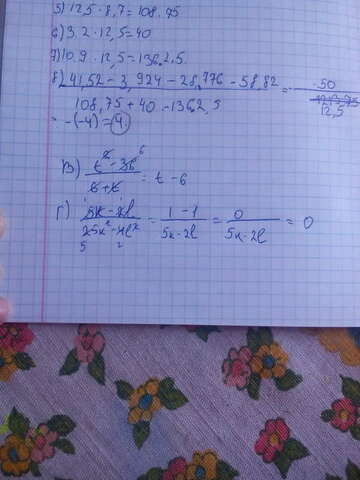 5) 12,5 · 8,7 = 108.75
6) 3.2 · 12,5 = 40
7) 10.9 · 12,5 = 136.2.5.
8) 41,52 - 3,924 - 28,776 - 58.82 / 108,75 + 40 - 136,2,5 = - 50 / 12,5
= -(-4) = 4.
в) t² - 36 6 / 6 + t = t - 6
г) 5k - 2l / 25k² - 4l² 5 2 = 1 - 1 / 5k - 2l = 0 / 5k - 2l = 0